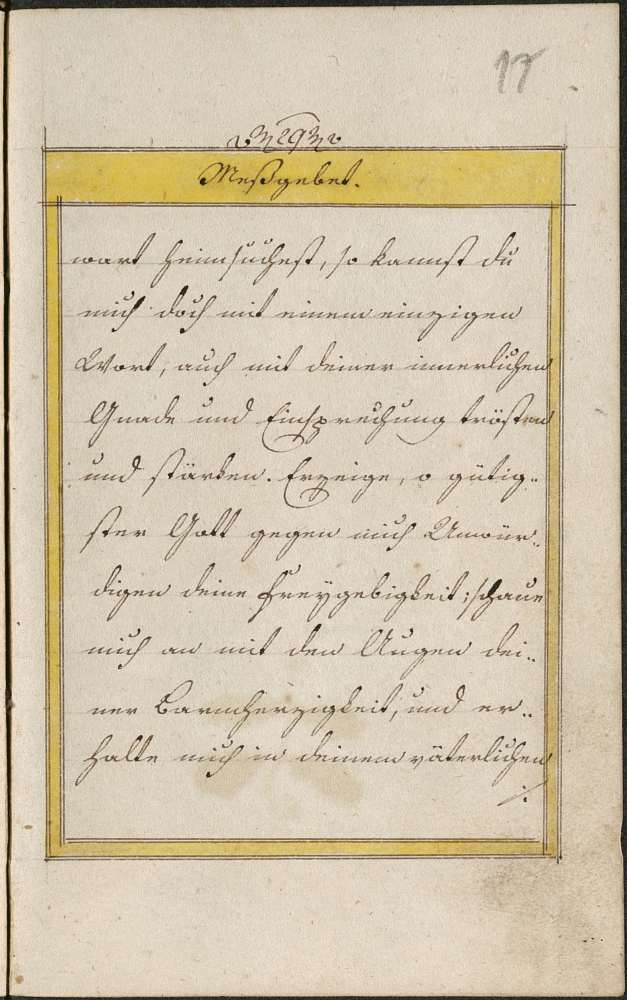 17
29
Meßgebet.
wart heimsuchest, so kannst du
mich doch mit einem einzigen
Wort, auch mit deiner innerlichen
Gnade und Einsprechung trösten
und stärken. Erzeige, o gütig-
ster Gott gegen mich Unwür-
digen deine Freygebigkeit; schaue
mich an mit den Augen dei-
ner Barmherzigkeit, und er-
halte mich in deinem väterlichen